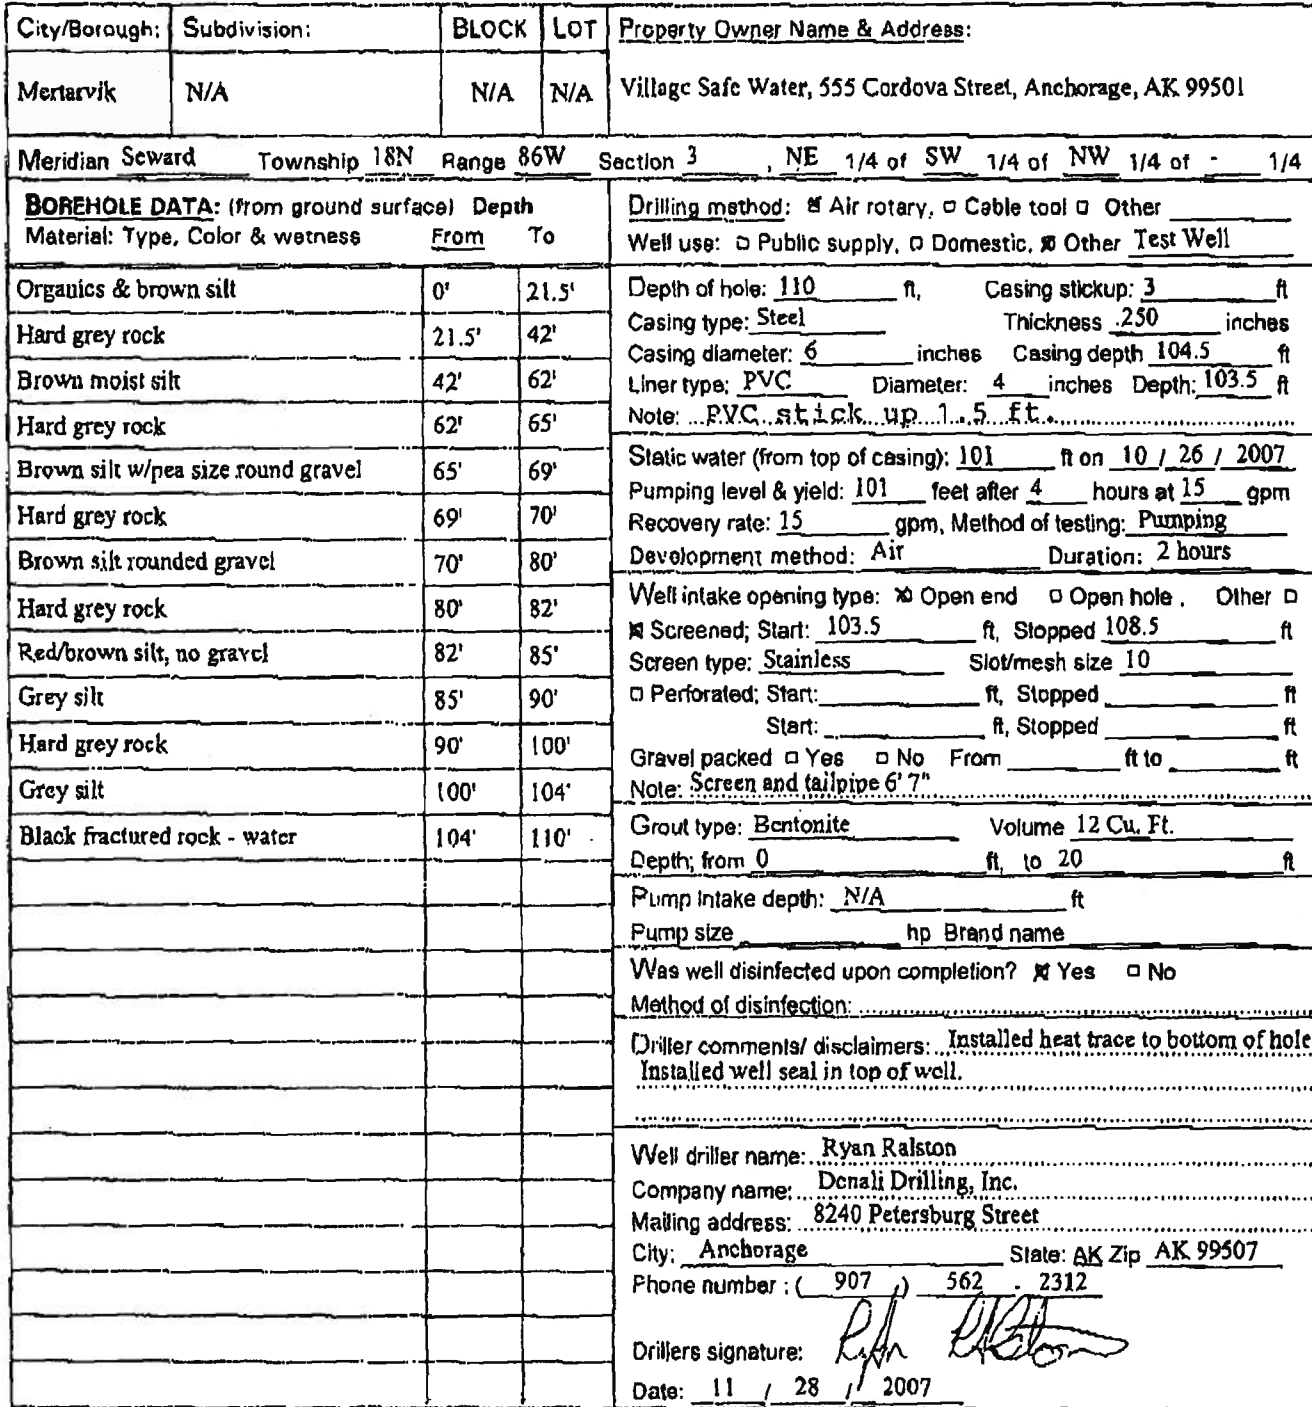 City/Borough: Subdivision: BLOCK LOT Property Owner Name & Address:
Mertarvik N/A N/A N/A Village Safe Water, 555 Cordova Street, Anchorage, AK 99501
Meridian Seward Township 18N Range 86W Section 3 , NE 1/4 of SW 1/4 of NW 1/4 of - 1/4
BOREHOLE DATA: (from ground surface) Depth
Material: Type, Color & wetness From To
Organics & brown silt 0' 21.5'
Hard grey rock 21.5' 42'
Brown moist silt 42' 62'
Hard grey rock 62' 65'
Brown silt w/pea size round gravel 65' 69'
Hard grey rock 69' 70'
Brown silt rounded gravel 70' 80'
Hard grey rock 80' 82'
Red/brown silt, no gravel 82' 85'
Grey silt 85' 90'
Hard grey rock 90' 100'
Grey silt 100' 104'
Black fractured rock - water 104' 110'
Drilling method: Air rotary, Cable tool Other
Well use: Public supply, Domestic, Other Test Well
Depth of hole: 110 ft, Casing stickup: 3 ft
Casing type: Steel Thickness .250 inches
Casing diameter: 6 inches Casing depth 104.5 ft
Liner type: PVC Diameter: 4 inches Depth: 103.5 ft
Note: PVC stick up 1.5 ft.
Static water (from top of casing): 101 ft on 10 / 26 / 2007
Pumping level & yield: 101 feet after 4 hours at 15 gpm
Recovery rate: 15 gpm, Method of testing: Pumping
Development method: Air Duration: 2 hours
Well intake opening type: Open end Open hole , Other
Screened; Start: 103.5 ft, Stopped 108.5 ft
Screen type: Stainless Slot/mesh size 10
Perforated; Start: ft, Stopped ft
Start: ft, Stopped ft
Gravel packed Yes No From ft to ft
Note: Screen and tailpipe 6' 7"
Grout type: Bentonite Volume 12 Cu. Ft.
Depth; from 0 ft, to 20 ft
Pump intake depth: N/A ft
Pump size hp Brand name
Was well disinfected upon completion? Yes No
Method of disinfection:
Driller comments/ disclaimers: Installed heat trace to bottom of hole
Installed well seal in top of well.
Well driller name: Ryan Ralston
Company name: Denali Drilling, Inc.
Mailing address: 8240 Petersburg Street
City: Anchorage State: AK Zip AK 99507
Phone number : ( 907 ) 562 - 2312
Drillers signature:
Date: 11 / 28 / 2007